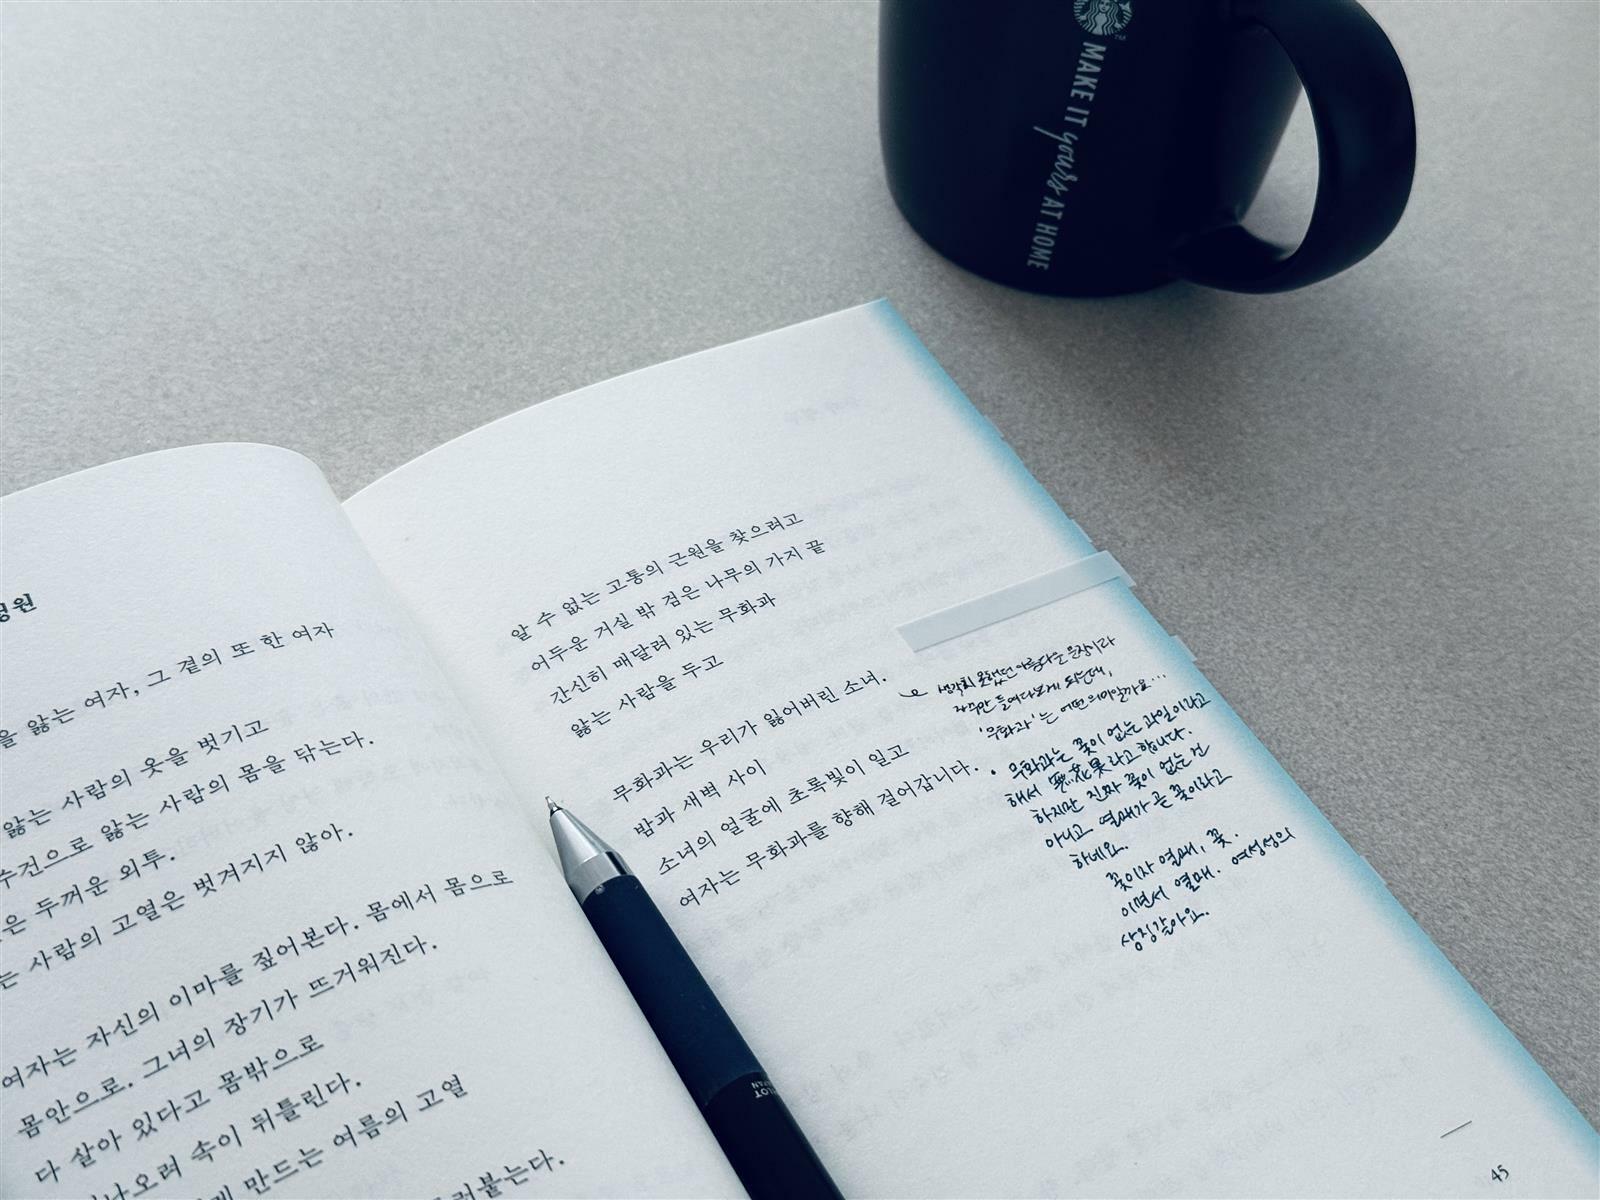 MAKE IT yours AT HOME
TM
정원
을 앓는 여자, 그 곁의 또 한 여자
앓는 사람의 옷을 벗기고
수건으로 앓는 사람의 몸을 닦는다.
은 두꺼운 외투.
는 사람의 고열은 벗겨지지 않아.
여자는 자신의 이마를 짚어본다. 몸에서 몸으로
몸안으로. 그녀의 장기가 뜨거워진다.
다 살아 있다고 몸밖으로
나오려 속이 뒤틀린다.
만드는 여름의 고열
붙는다.
알 수 없는 고통의 근원을 찾으려고
어두운 거실 밖 검은 나무의 가지 끝
간신히 매달려 있는 무화과
앓는 사람을 두고
무화과는 우리가 잃어버린 소녀.
밤과 새벽 사이
소녀의 얼굴에 초록빛이 일고
여자는 무화과를 향해 걸어갑니다.
생각치 못했던 아름다운 문장이라
자꾸만 들여다보게 되는데,
'무화과'는 어떤 의미일까요...
• 무화과는 꽃이 없는 과일이라고
해서 無花果라고 합니다.
하지만 진짜 꽃이 없는 건
아니고 열매가 곧 꽃이라고
하네요.
꽃이자 열매, 꽃.
이면서 열매. 여성성의
상징같아요.
45